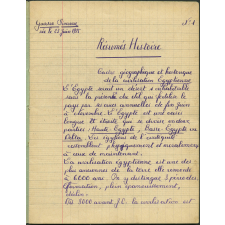 N° 1
le 23 Juin
Résumés Histoire
Cadre géographique et historique
de la civilisation égyptienne
L'Égypte serait un désert inhabitable
sans la présence du Nil qui fertilise le
pays par ses crues annuelles de fin Juin
à Novembre. L'Égypte est une oasis
longue et étroite qui se divise en deux
parties : Haute Égypte, Basse Égypte ou
Delta. Les égyptiens de l'antiquité
ressemblaient physiquement et moralement
à ceux de maintenant.
La civilisation égyptienne est une des
plus anciennes de la terre elle remonte
à 6.000 ans. On y distingue 3 périodes :
formation, plein épanouissement,
déclin.
3000 avant J.C. la civilisation est